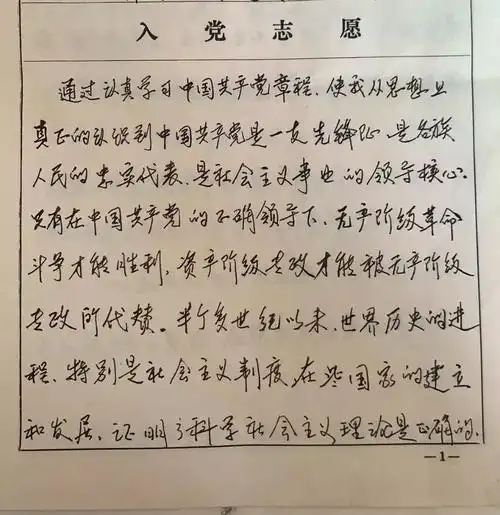 入党志愿
通过认真学习中国共产党章程、使我从思想上
真正的认识到中国共产党是一支先锋队、是各族
人民的忠实代表、是社会主义事业的领导核心。
只有在中国共产党的正确领导下、无产阶级革命
斗争才能胜利，资产阶级专政才能被无产阶级
专政所代替。半个多世纪以来、世界历史的进
程、特别是社会主义制度、在些国家的建立
和发展、证明了科学社会主义理论是正确的、
—1—